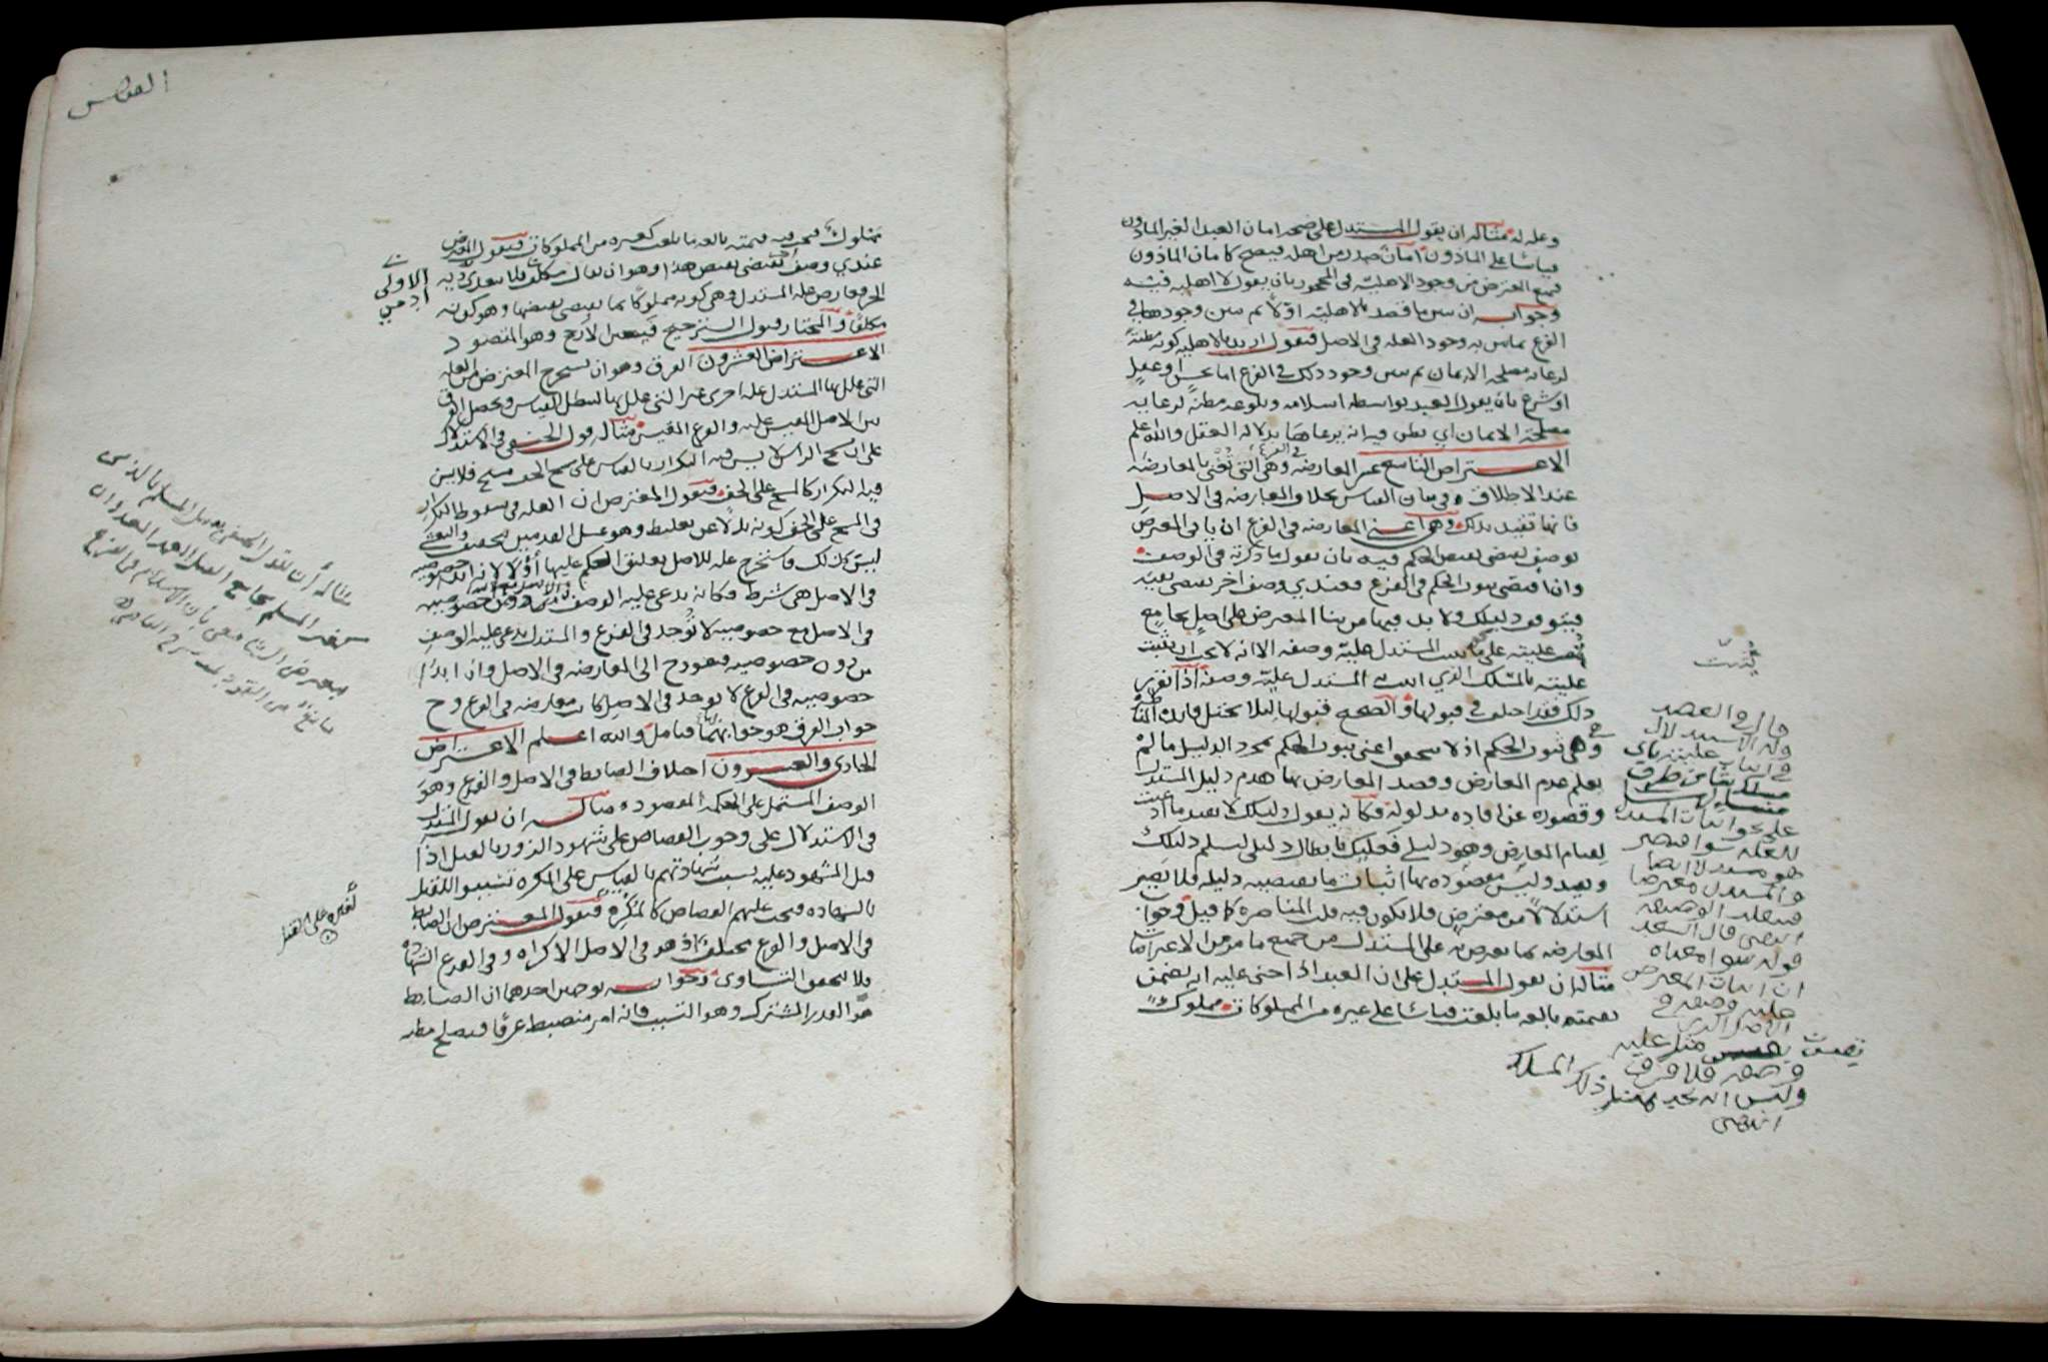 وعله له مثاله ان يقول المستدل على صحه امان العبد الغير الماذون
قياسا على الماذون امان صدر من اهله فيصح كامان الماذون
فيمنع المعترض من وجود الاهلية في المحجور بان يقول لا اهليه فيه
وجوابه ان يبين ما قصد بالاهلية اولا ثم يبين وجودها في
الفرع بما يبين به وجود العله في الاصل فيقول اريد بالاهليه كونه مظنة
لرعايه مصلحه الايمان ثم يبين وجود ذلك في الفرع اما بحس او عقل
او شرع بان يقول العبد بواسطه اسلامه وبلوغه مظنة لرعايه
مصلحة الايمان اي يظن فيه انه يرعاها بدلاله العقل والله اعلم
الاعتراض التاسع عشر المعارضه في الفرع وهي التي تعنى بالمعارضه
عند الاطلاق في بيان القياس بخلاف المعارضه في الاصل
فانها تقيد بذلك وهي اعني المعارضه في الفرع ان ياتي المعترض
بوصف يقتضي نقيض الحكم فيه بان يقول ما ذكرته في الوصف
وان اقتضى ثبوت الحكم في الفرع فعندي وصف اخر يقتضي نقيضه
فيتوقف دليلك ولا بد فيها من بنا المعترض على اصل بجامع
تثبت عليته على المستدل علية وصفه الا انه لا يجب ان يثبت
عليته بالمسلك الذي اثبت المستدل علية وصفه اذا تقرر
ذلك فقد اختلف في قبولها والصحيح قبولها ليلا يختل فايدة المناظره
وهي ثبوت الحكم اذ لا يتحقق اعني ثبوت الحكم بمجرد الدليل ما لم
يعلم عدم المعارض وقصد المعارض بها هدم دليل المستدل
وقصوره عن افاده مدلوله فكانه يقول دليلك لا يفيد ما ادعيت
لقيام المعارض وهو دليلي فعليك بابطال دليلي ليسلم دليلك
ويفيد وليس مقصوده بها اثبات ما يقتضيه دليله فلا يصير
استدلالا من معترض فلا يكون فيه قلب المناصره كما قيل وجواب
المعارضه بما يعترض به على المستدل من جميع ما مر من الاعتراضات
مثاله ان يقول المستدل على ان العبد اذا جني عليه انه يضمن
بقيمته بالغه ما بلغت قياسا على غيره من المملوكات مملوك
تثبت
قال في العضد
قوله الاستدلال
في اثبات عليته باي
مسلك شا من طرق
على نحو اثبات المستدل
للعله سوا فيصير
هو مستدلا ايضا
والمستدل معترضا
انتهى قال السعد
قوله سوا معناه
ان اثبات المعترض
علية وصفه في
مثل علية
وصفه فلا فرق
وليس انه يجب بمثل ذلك المسلك
انتهى
القياس
مملوك فيجب فيه قيمته بالغه ما بلغت كغيره من المملوكات فيقول المعترض
عندي وصف يقتضي نقيض هذا وهو ان يقال مكلف فلا يتعدى به
الحر فعارض علة المستدل وهي كونه مملوكا بما يقتضي نقيضها وهو كونه
مكلفا والمختار قبول الترجيح فيتعين الارجح وهو المقصود
الاعتراض العشرون الفرق وهو ان يستخرج المعترض من العله
التي علل بها المستدل عله اخرى غير التي علل بها ليبطل القياس ويحصل الفرق
بين الاصل المقيس عليه والفرع المقيس مثاله قول الحنفي في الاستدلال
على ان مسح الراس لا يسن فيه التكرار بالقياس على مسح الخف مسح فلا يسن
فيه التكرار كالمسح على الخف فيقول المعترض ان العله في سقوط التكرار
في المسح على الخف كونه بدلا عن تغليظ وهو غسل القدمين
ليس كذلك فاستخرج عله للاصل يعلق الحكم عليها اولا لانه ابدا خصوصيه
في الاصل هي شرط فكانه يدعي عليه الوصف
في الاصل مع خصوصيه لا توجد في الفرع والمستدل يدعي عليه الوصف
من دون خصوصيه فيعود ح الى المعارضه في الاصل وان ابدا
خصوصيه في الفرع لا توجد في الاصل كان معارضه في الفرع وح
جواب الفرق هو جوابهما فتامل والله اعلم الاعتراض
الحادي والعشرون اختلاف الضابط في الاصل والفرع وهو
الوصف المشتمل على الحكمه المقصوده مثاله ان يقول المستدل
في الاستدلال على وجوب القصاص على شهود الزور بالقتل اذا
قتل المشهود عليه بسبب شهادتهم بالقياس على المكره تسببوا للقتل
بالشهاده فيجب عليهم القصاص كالمكره فيقول المعترض ان الضابط
في الاصل والفرع مختلف اذ هو في الاصل الاكراه وفي الفرع الشهاده
فلا يتحقق التساوي وجوابه يوجهين احدهما ان الضابط
هو القدر المشترك وهو التسبب فانه امر منضبط عرفا فيصلح مظنه
الاولى
ادمي
مثاله ان يقول الحنفي يقتل المسلم بالذمي
كغير المسلم بجامع القتل العمد العدوان
فيعترض الشافعي بان الاسلام في الفرع
مانع من القود
لغيره على القتل